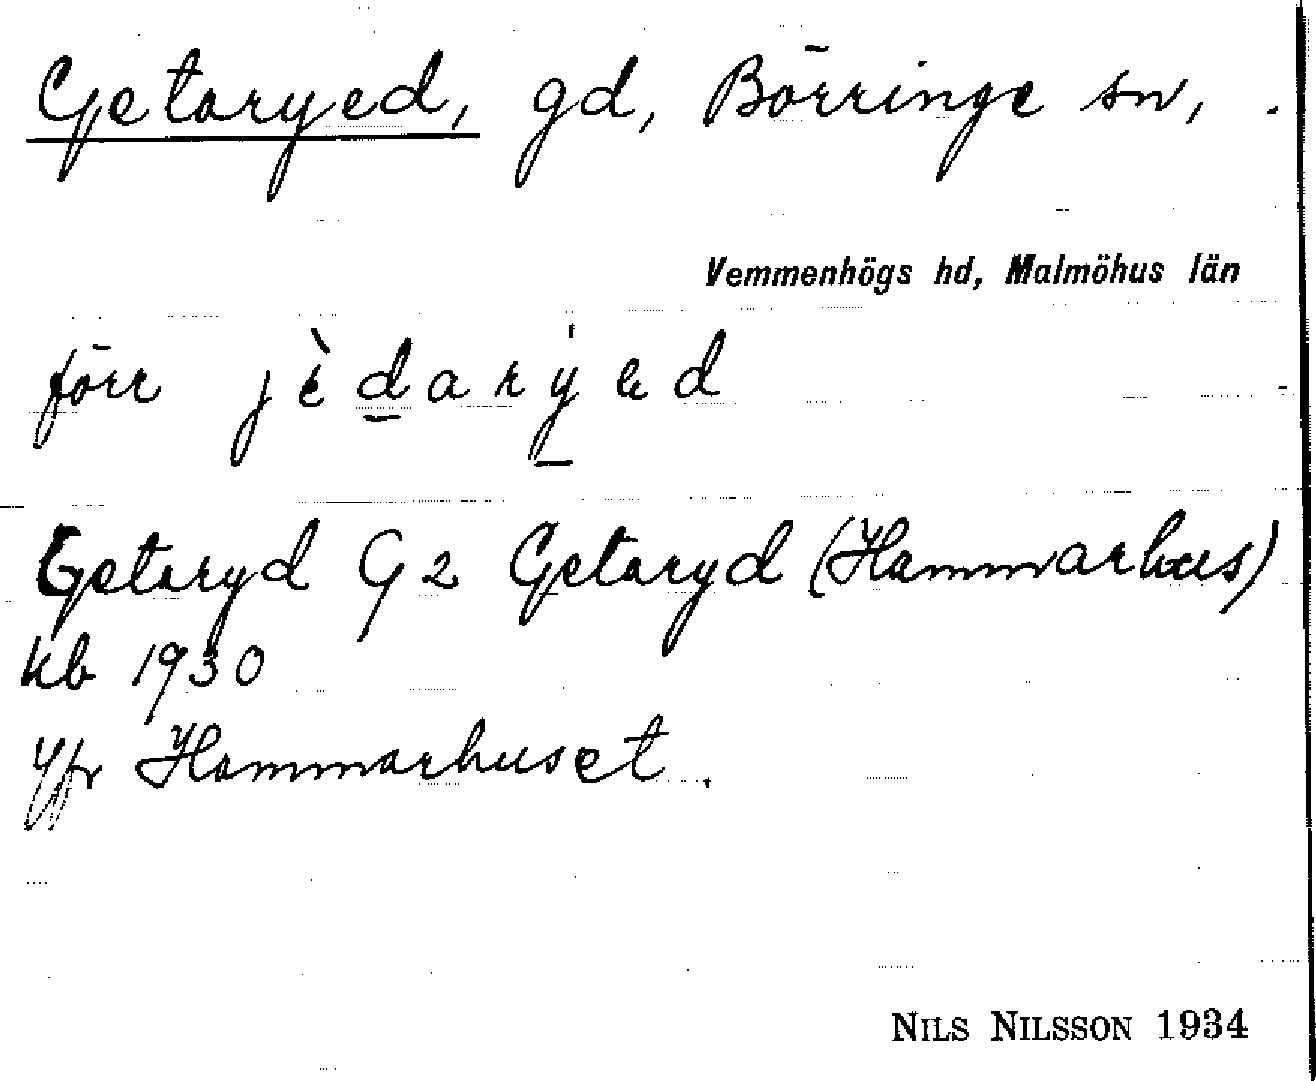 Getaryed, gd, Börringe sn,
Vemmenhögs hd, Malmöhus län
förr jèdarýed
Getaryd G2 Getaryd (Hammarhus)
kb 1930
Jfr Hammarhuset.
NILS NILSSON 1934